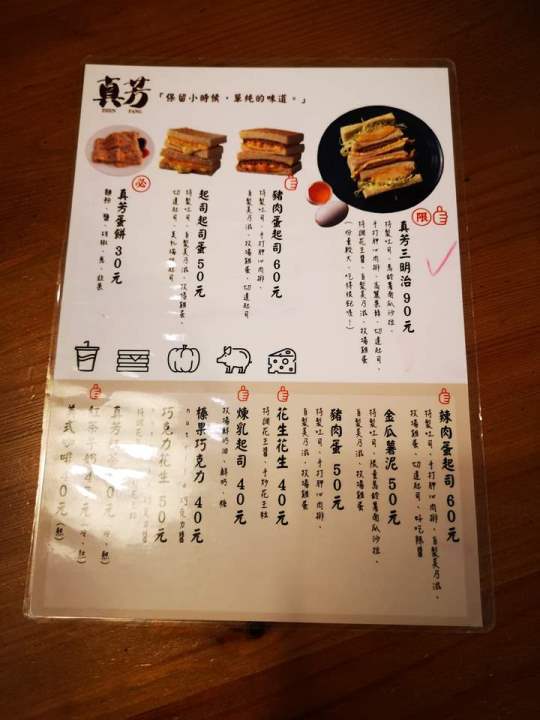 真芳
ZHEN FANG
「保留小時候，單純的味道。」
限
真芳三明治 90元
特製吐司、高齡薯南瓜沙拉、
手打胛心肉排、高麗菜絲、切達起司、
特調花生醬、自製美乃滋、牧場雞蛋
(份量較大，吃得很飽唷！)
豬肉蛋起司 60元
特製吐司、手打胛心肉排、
自製美乃滋、牧場雞蛋、切達起司
起司起司蛋 50元
特製吐司、自製美乃滋、牧場雞蛋、
切達起司、
必
真芳蛋餅 30元
麵粉、鹽、胡椒、蔥、
辣肉蛋起司 60元
特製吐司、手打胛心肉排、自製美乃滋、
牧場雞蛋、切達起司、好吃辣醬
金瓜薯泥 50元
特製吐司、限量高齡薯南瓜沙拉、
自製美乃滋、牧場雞蛋
豬肉蛋 50元
特製吐司、手打胛心肉排、
自製美乃滋、牧場雞蛋
花生花生 40元
特調花生醬、手炒花生粒
煉乳起司 40元
牧場鮮奶油、鮮奶、糖
榛果巧克力 40元
巧克力花生 50元
真芳紅茶
紅茶
美式咖啡